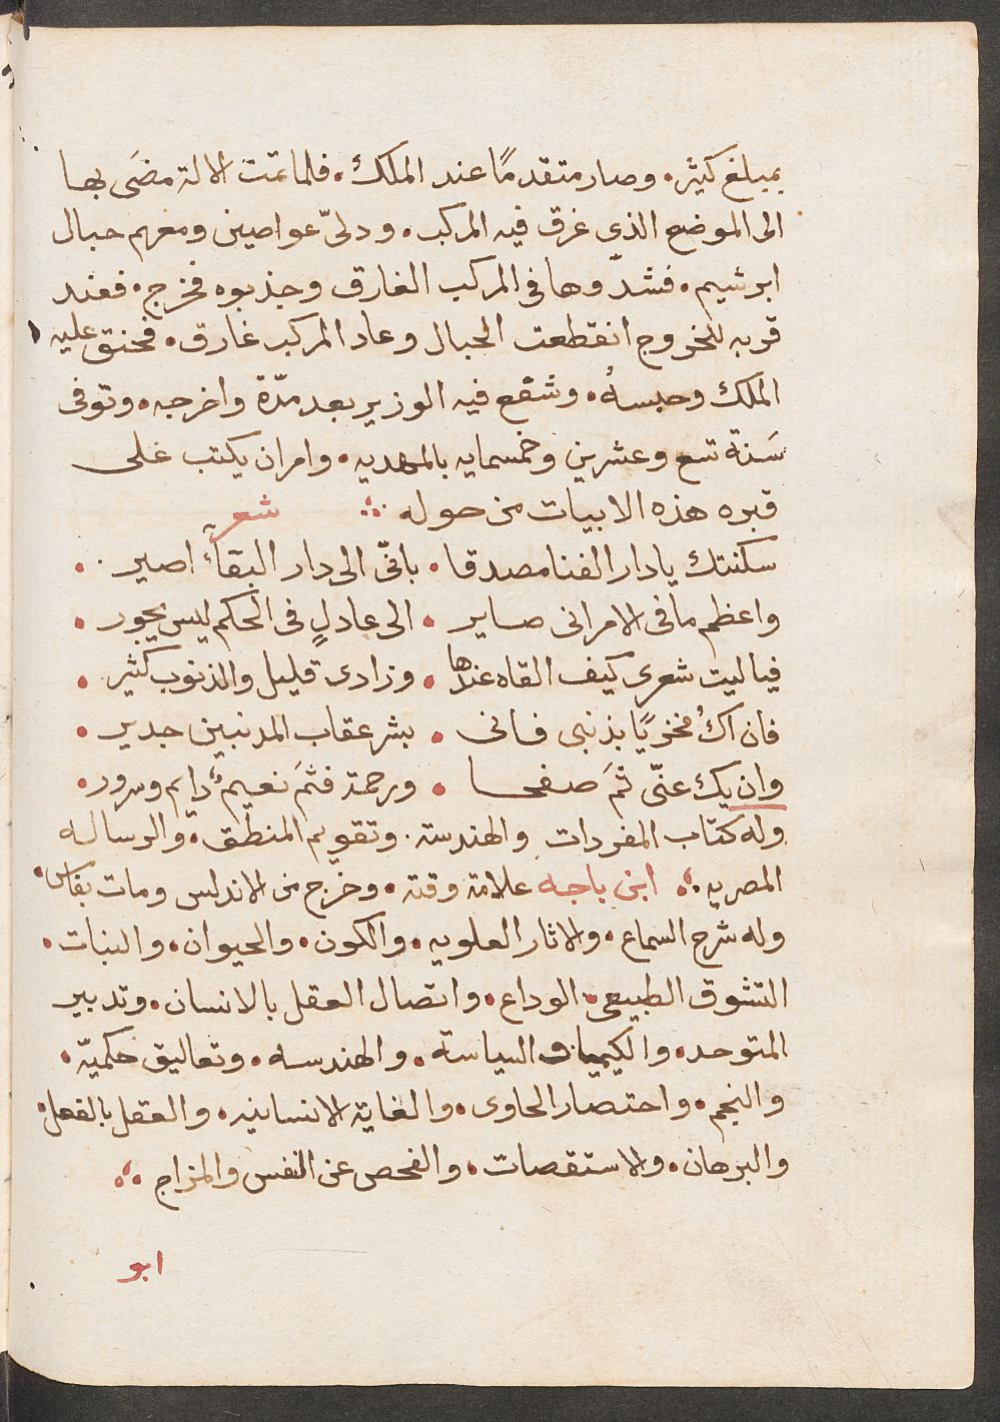 بمبلغ كثير. وصار متقدمًا عند الملك. فلما تمت الالة مضَى بها
الى الموضع الذى غرق فيه المركب. ودلّى عواصين ومعهم حبال
ابرشيم. فشدّوها فى المركب الغارق وجذبوه فخرج. فعند
قربه للخروج انقطعت الحبال وعاد المركب غارق. فحنق عليه
الملك وحبسهُ. وشفع فيه الوزير بعد مدّة واخرجه. وتوفى
سَنة تسع وعشرين وخمسمايه بالمهديه. وامر ان يكتب على
قبره هذه الابيات من حوله ؞ شعر
سكنتك يا دار الفنا مصدقا . بانّى الى دار البقاءِ اصير .
واعظم ما فى الامر انى صاير . الى عادلٍ فى الحكم ليس يجور .
فيا ليت شعرى كيف القاه عندها . وزادى قليل والذنوب كثير .
فان اكُ مخزيًا بذنبى فانى . بشر عقاب المدنبين جدير .
وان يك عنّى ثمَ صفحا . ورحمة فثمَ نعيمٌ دايم وسرور .
وله كتاب المفردات والهندسة. وتقويم المنطق. والرساله
المصريه ؞ ابن باجه علامة وقته . وخرج من الاندلس ومات بفاس .
وله شرح السماع . والاثار العلويه . والكون . والحيوان . والنبات .
التشوق الطبيعى . الوداع . واتصال العقل بالانسان . وتدبير
المتوحد . والكيميا . والسياسة . والهندسه . وتعاليق حكميّة .
والنجم . واحتصار الحاوى . والغاية الانسانيه . والعقل بالفعل .
والبرهان . والاستقصات . والفحص عن النفس والمزاج ؞
ابو